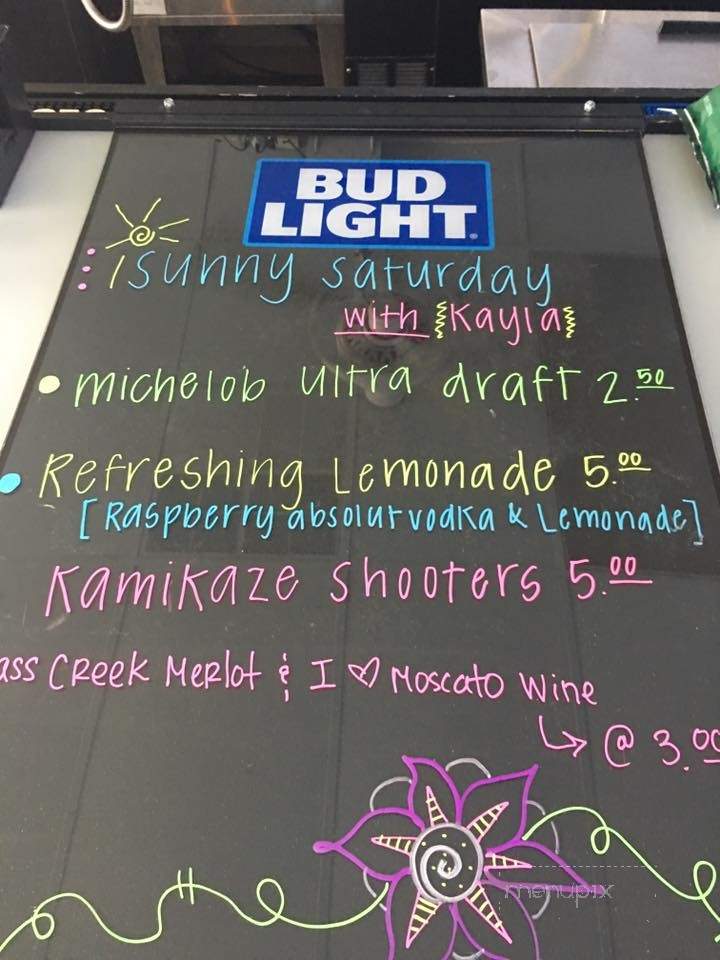 BUD
LIGHT
sunny saturday
with {Kayla}
• michelob ultra draft 2.50
• Refreshing Lemonade 5.00
[Raspberry absolut vodka & Lemonade]
Kamikaze shooters 5.00
Creek Merlot & I ♡ Moscato Wine
↳ @ 3.00
menupix